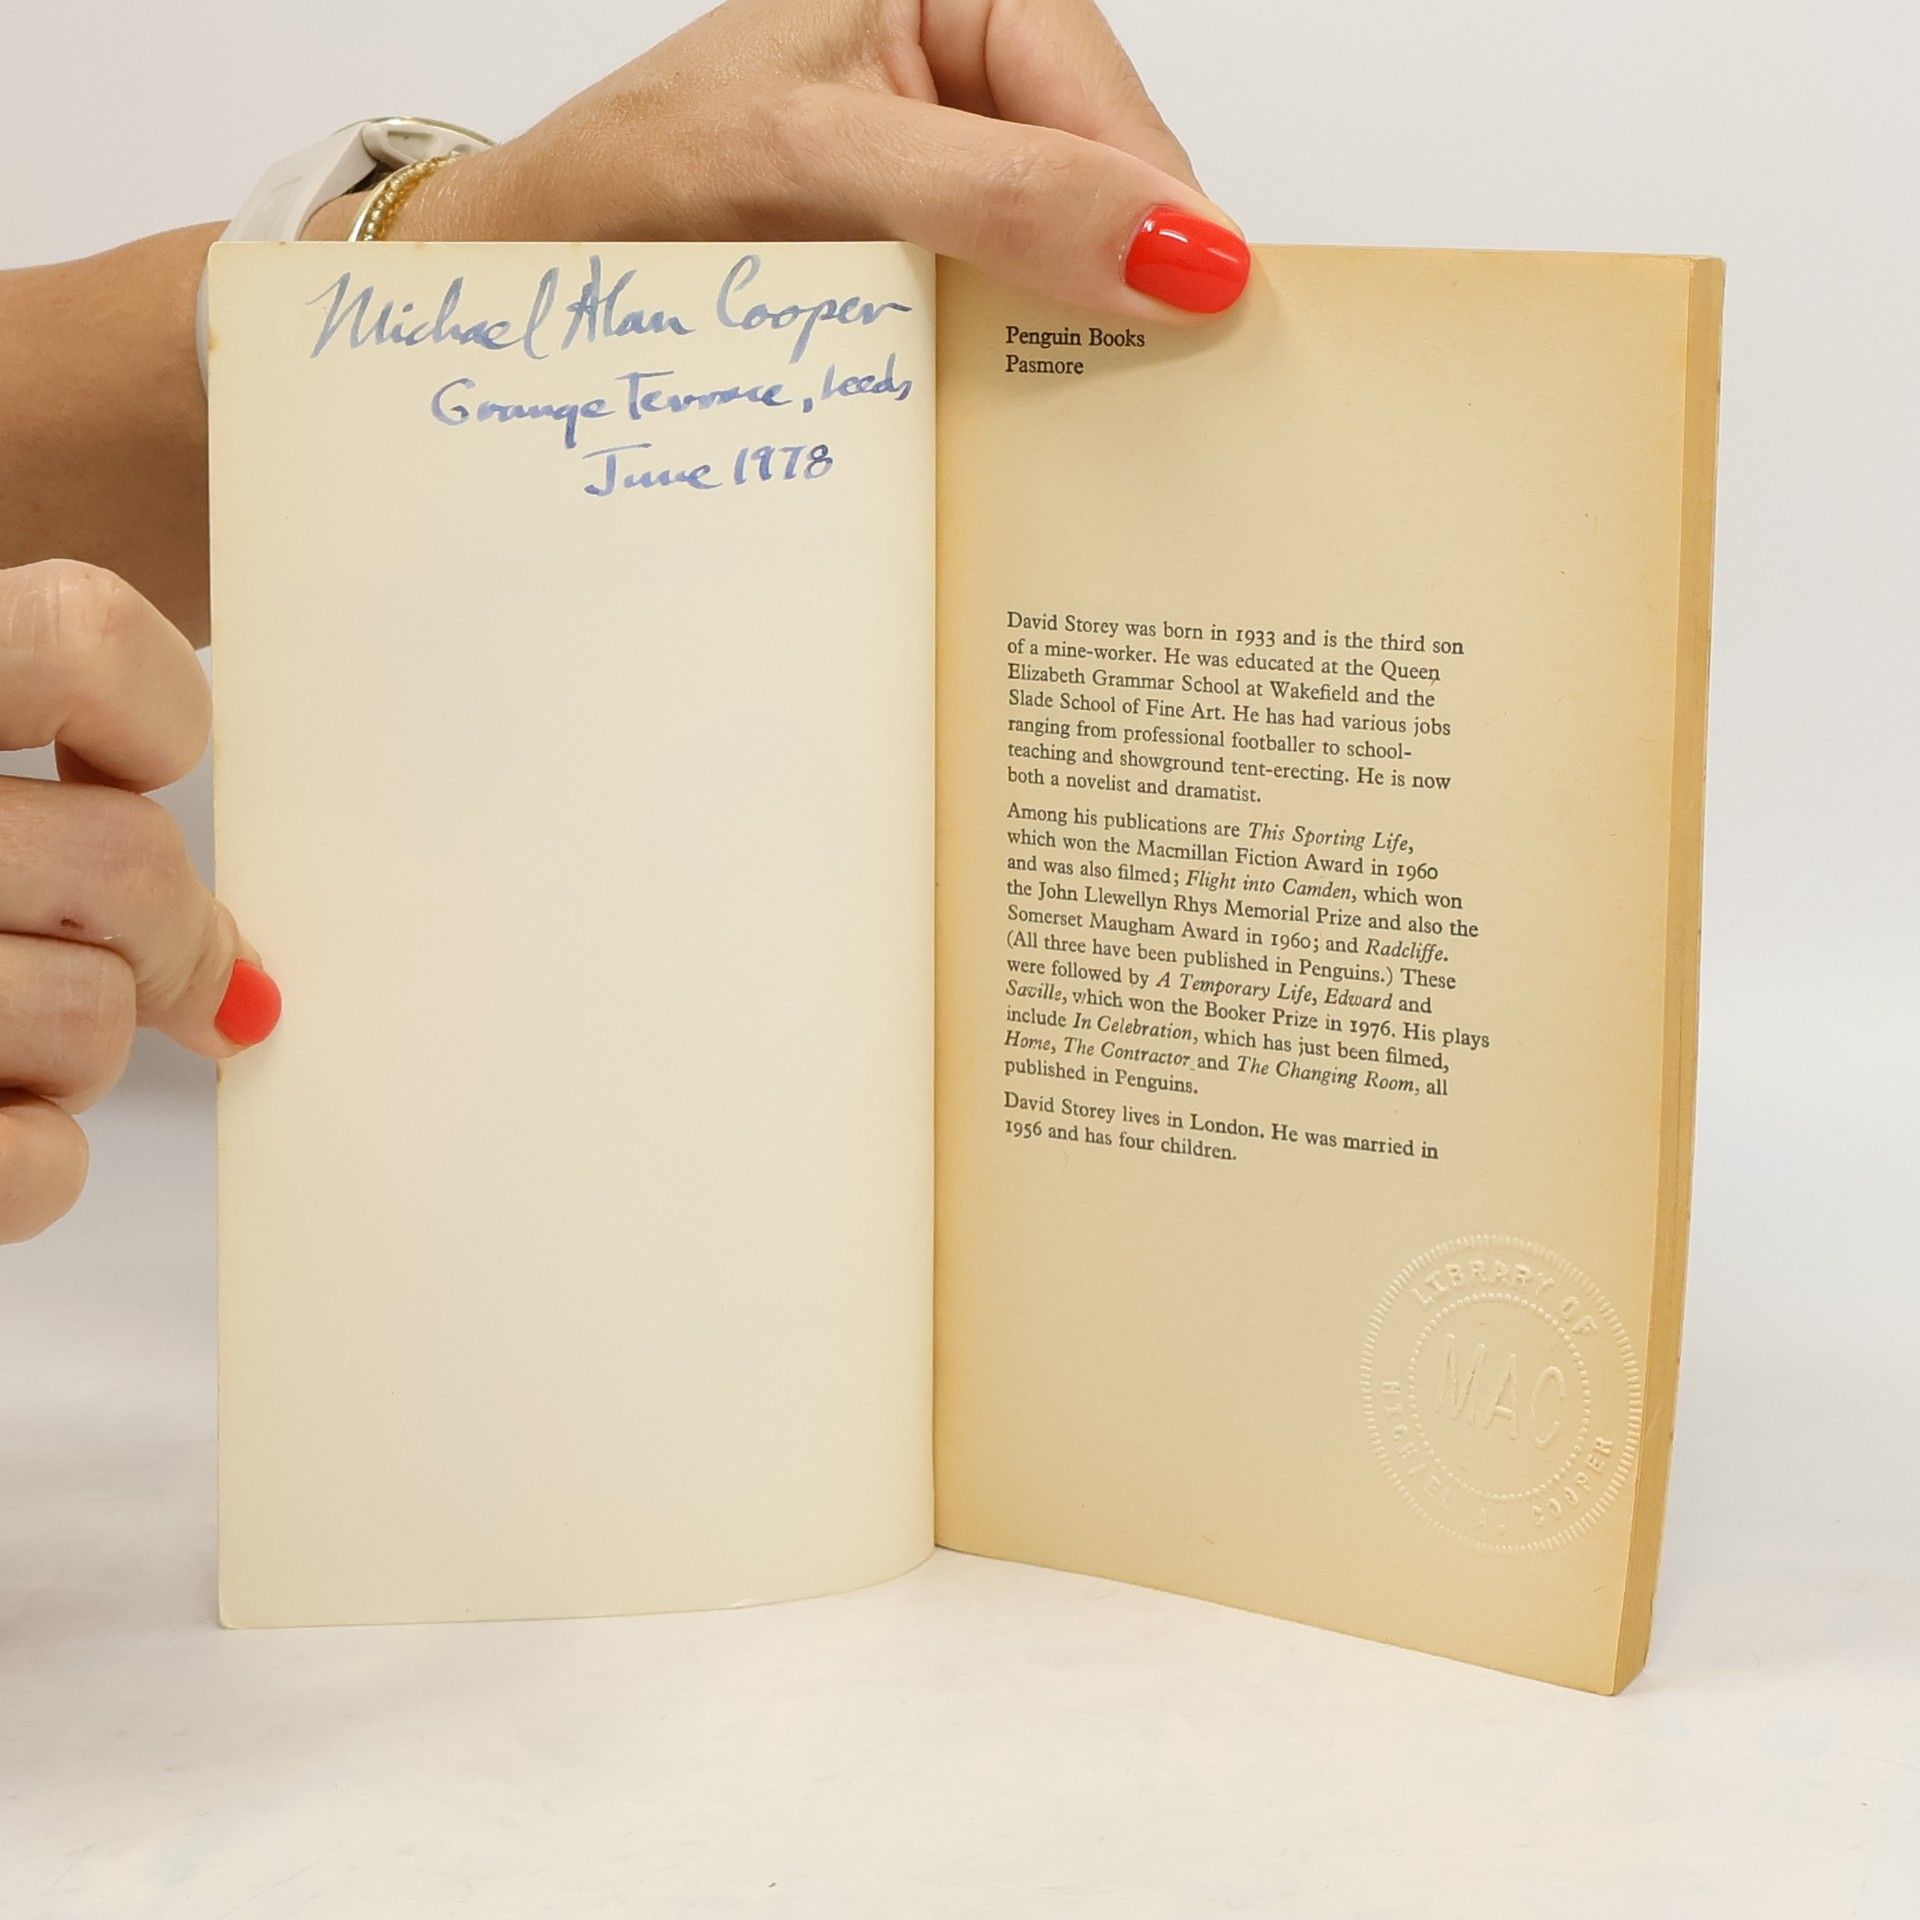 Michael Alan Cooper
Grange Terrace, Leeds
June 1978
Penguin Books
Pasmore
David Storey was born in 1933 and is the third son
of a mine-worker. He was educated at the Queen
Elizabeth Grammar School at Wakefield and the
Slade School of Fine Art. He has had various jobs
ranging from professional footballer to school-
teaching and showground tent-erecting. He is now
both a novelist and dramatist.
Among his publications are This Sporting Life,
which won the Macmillan Fiction Award in 1960
and was also filmed; Flight into Camden, which won
the John Llewellyn Rhys Memorial Prize and also the
Somerset Maugham Award in 1960; and Radcliffe.
(All three have been published in Penguins.) These
were followed by A Temporary Life, Edward and
Saville, which won the Booker Prize in 1976. His plays
include In Celebration, which has just been filmed,
Home, The Contractor and The Changing Room, all
published in Penguins.
David Storey lives in London. He was married in
1956 and has four children.
LIBRARY OF
MAC
MICHAEL A. COOPER